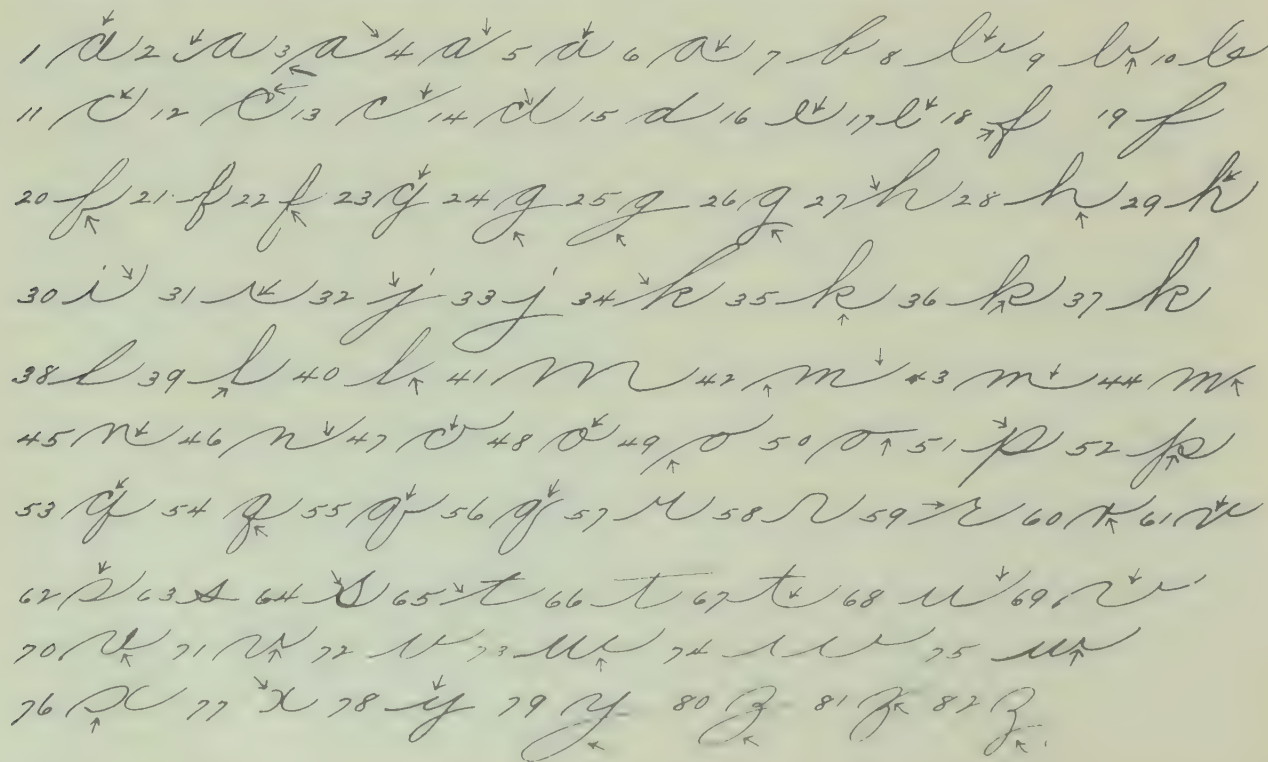 1 a 2 a 3 a 4 a 5 a 6 a 7 b 8 b 9 b 10 b
11 c 12 c 13 c 14 d 15 d 16 e 17 e 18 f 19 f
20 f 21 f 22 f 23 g 24 g 25 g 26 g 27 h 28 h 29 h
30 i 31 i 32 j 33 j 34 k 35 k 36 k 37 k
38 l 39 l 40 l 41 m 42 m 43 m 44 m
45 n 46 n 47 o 48 o 49 o 50 o 51 p 52 p
53 q 54 q 55 q 56 q 57 r 58 r 59 r 60 r 61 r
62 s 63 s 64 s 65 t 66 t 67 t 68 u 69 v
70 v 71 v 72 v 73 w 74 w 75 w
76 x 77 x 78 y 79 y 80 z 81 z 82 z